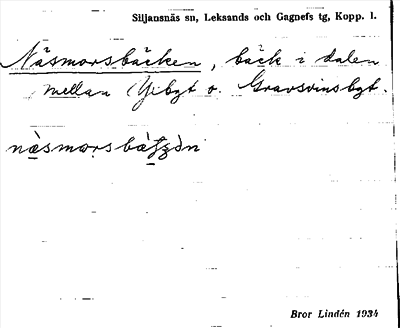 Siljansnäs sn, Leksands och Gagnefs tg, Kopp. l.
Näsmorsbäcken, bäck i dalen
mellan Yibyt o. Gravsvinsbyt.
Bror Lindén 1934